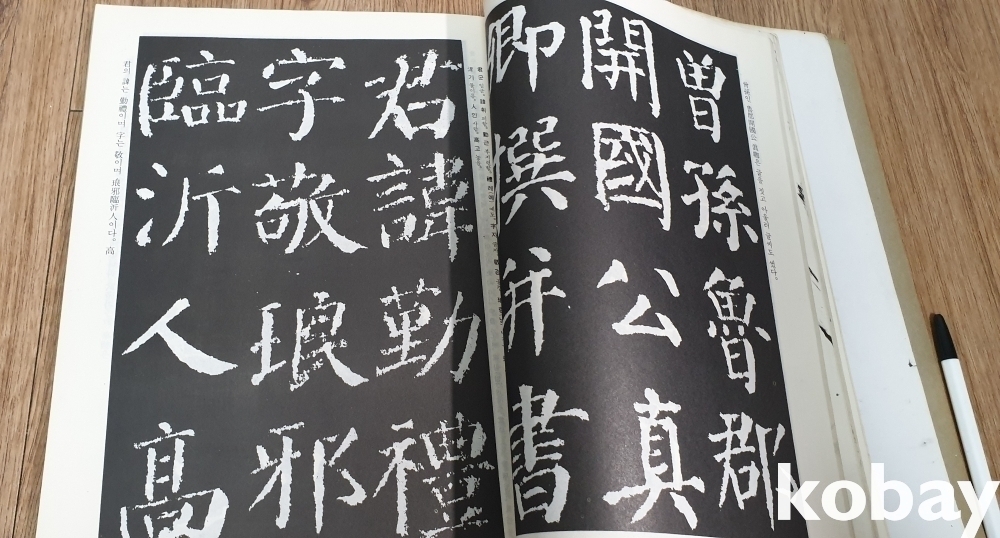 曾孫인 魯郡開國公 眞卿은 글을 짓고 아울러 글씨도 썼다.
曾孫魯郡
開國公真
卿撰并書
君諱勤禮
字敬琅邪
臨沂人高
君의 諱는 勤禮이며 字는 敬이며 琅邪臨沂人이다。高
kobay